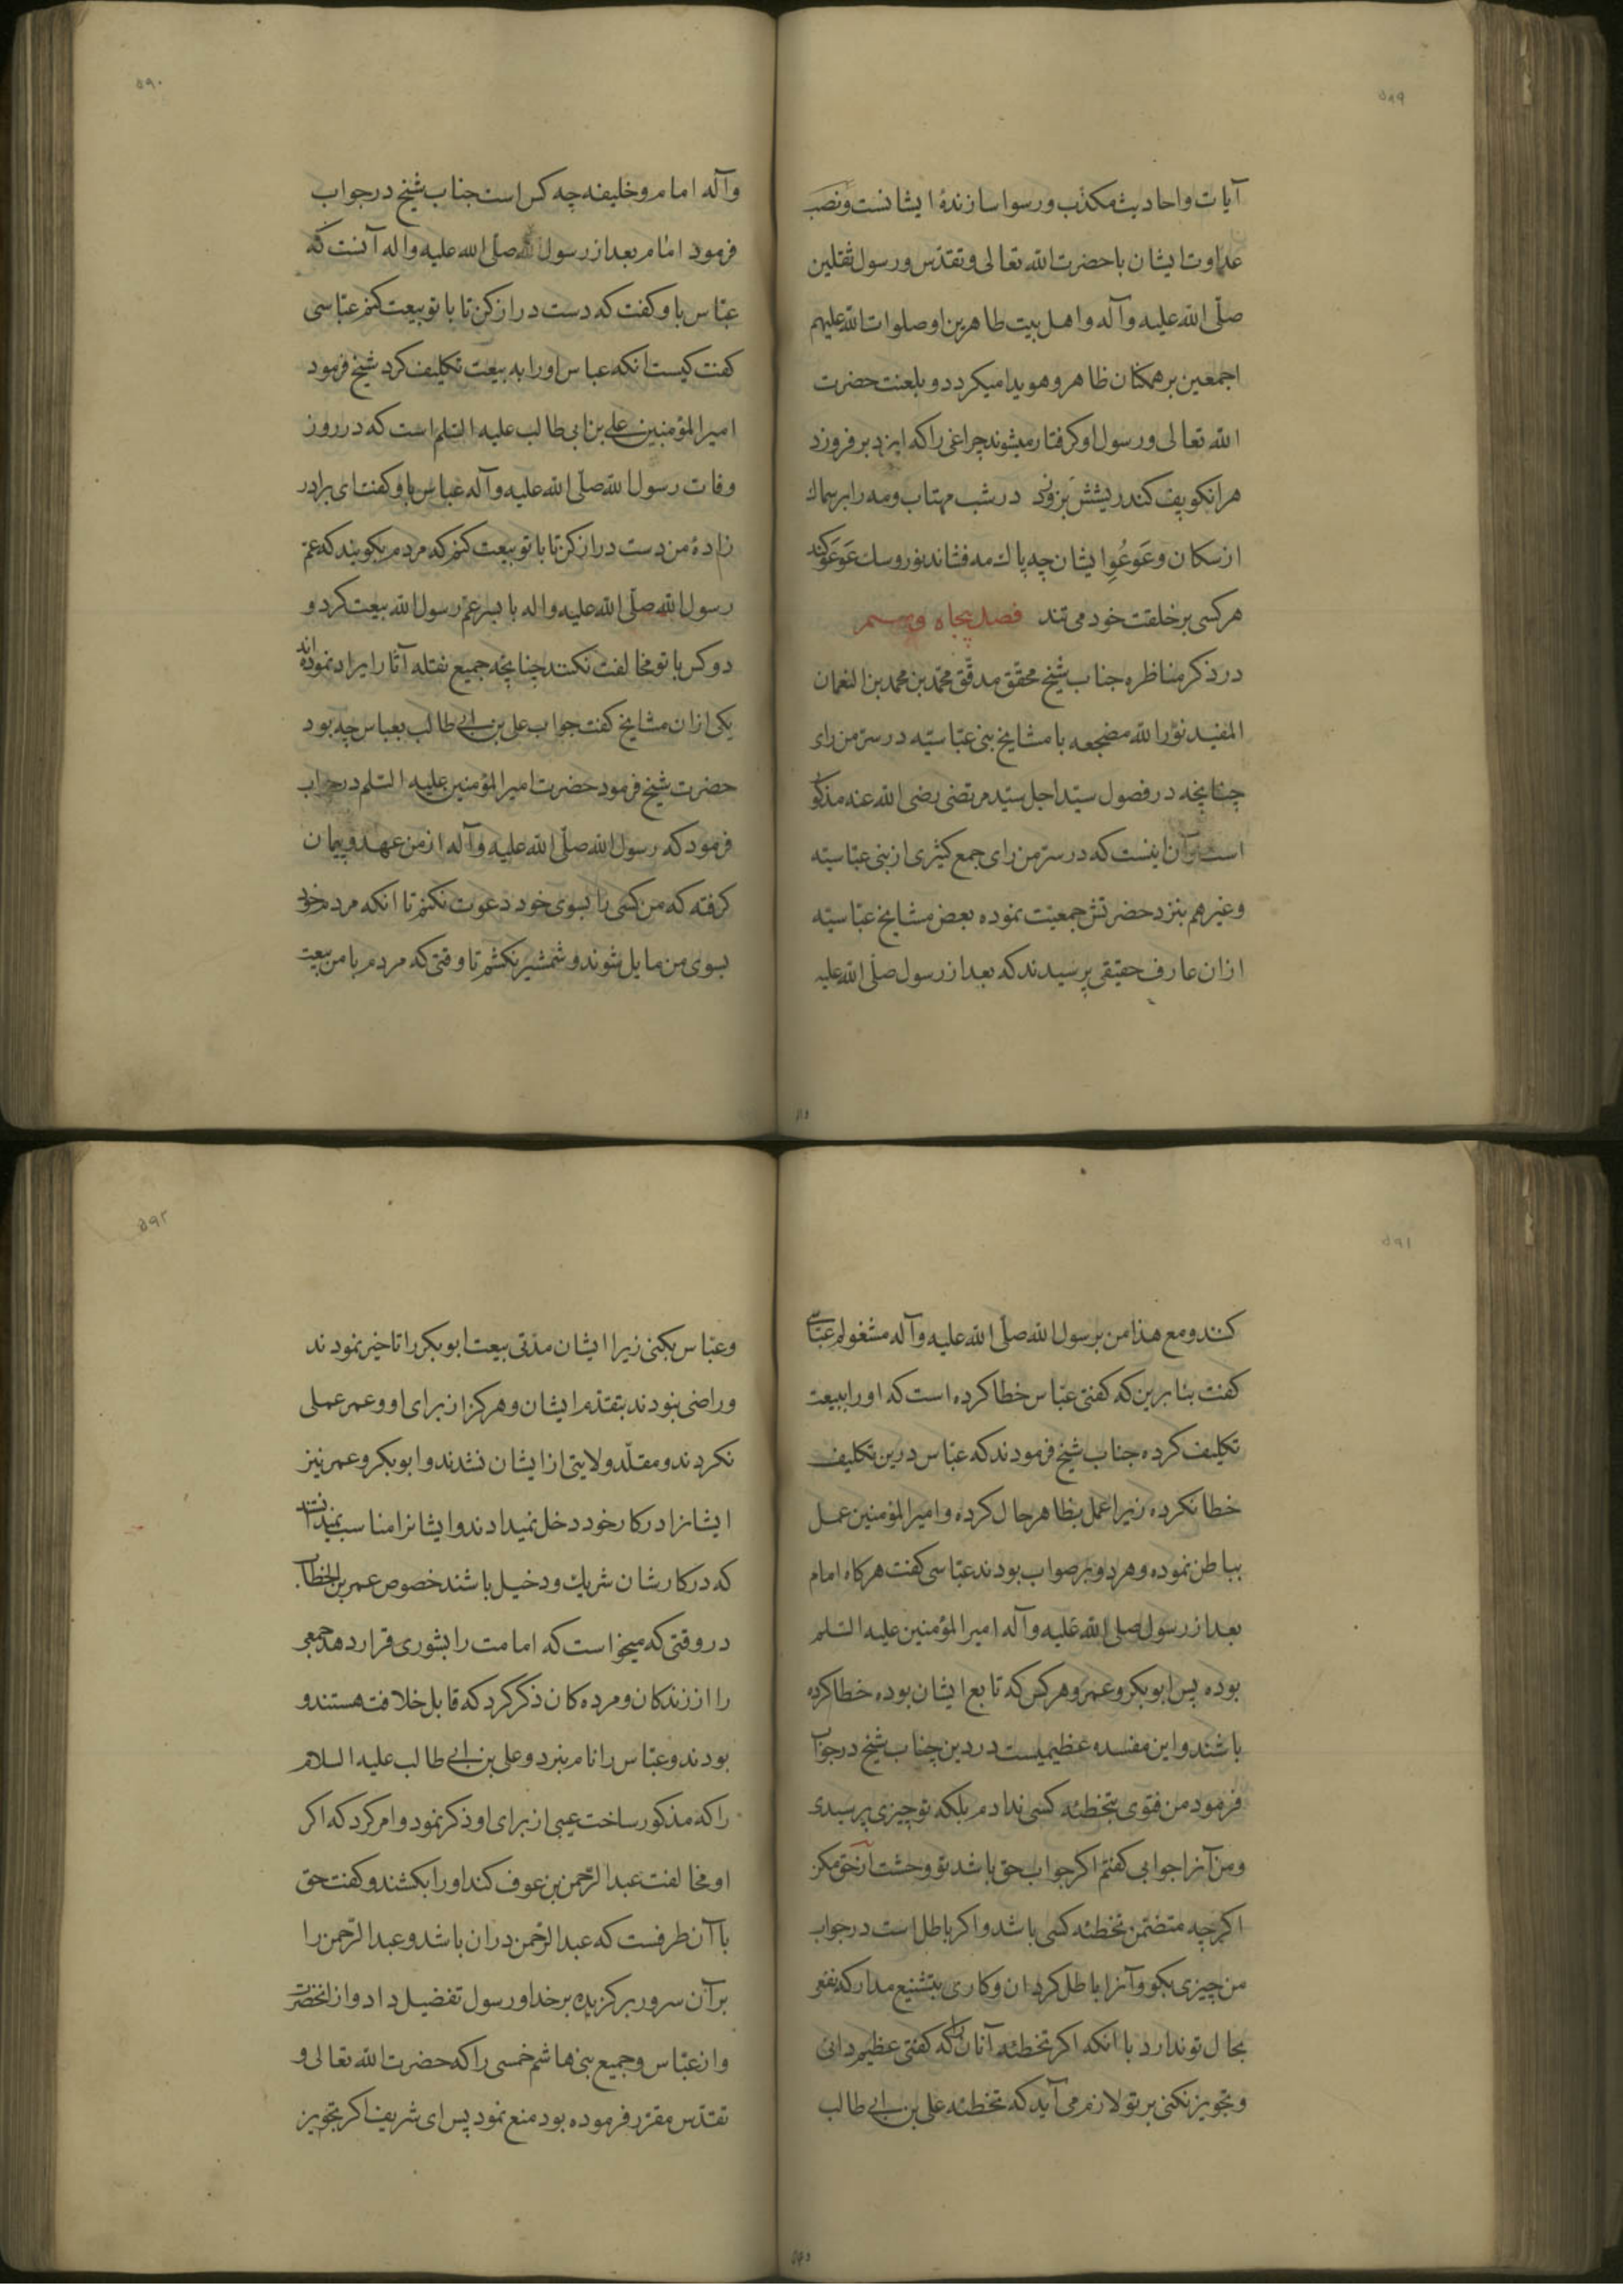 ۵۸۹
آیات و احادیث مکذب و رسوا سازندهٔ ایشانست و نصب
عداوت ایشان با حضرت الله تعالی و تقدس و رسول ثقلین
صلّی الله علیه وآله و اهل بیت طاهرین او صلوات الله علیهم
اجمعین بر همکنان ظاهر و هویدا میکردد و بلعنت حضرت
الله تعالی و رسول او کرفتار میشوند چراغی را که ایزد بر فروزد
هر انکو پف کند ریشش بزودی در شب مهتاب و مه را بر سماك
از سکان و عَوعَوِ ایشان چه باك مه فشاند نور و سك عَوعَو کند
هر کسی بر خلقت خود می تند فصل پنجاه و
در ذکر مناظره جناب شیخ محقق مدقّق محمّد بن محمد بن النعمان
المفید نوّر الله مضجعه با مشایخ بنی عبّاسیّه در سرّ من رای
چنانچه در فصول سیّد اجل سیّد مرتضی رضی الله عنه مذکور
است و آن اینست که در سرّ من رای جمع کثیری از بنی عبّاسیّه
و غیر هم بنزد حضرتش جمعیّت نموده بعض مشایخ عبّاسیّه
از ان عارف حقیقی پرسیدند که بعد از رسول صلّی الله علیه
۵۹۰
وآله امام و خلیفه چه کس است جناب شیخ در جواب
فرمود امام بعد از رسول الله صلّی الله علیه واله آنست که
عبّاس باو کفت که دست دراز کن تا با تو بیعت کنم عبّاسی
کفت کیست انکه عباس او را به بیعت تکلیف کرد شیخ فرمود
امیر المؤمنین علی بن ابی طالب علیه السّلم است که در روز
وفات رسول الله صلّی الله علیه وآله عباس باو کفت ای برادر
زادهٔ من دست دراز کن تا با تو بیعت کنم که مردم بکویند که عمّ
رسول الله صلّی الله علیه واله با پسر عمّ رسول الله بیعت کرد و
دو کس با تو مخالفت نکنند چنانچه جمیع نقله آثار ایراد نموده اند
یکی از ان مشایخ کفت جواب علی بن ابی طالب بعباس چه بود
حضرت شیخ فرمود حضرت امیر المؤمنین علیه السّلم در جواب
فرمود که رسول الله صلّی الله علیه وآله از من عهد و پیمان
کرفته که من کسی را بسوی خود دعوت نکنم تا انکه مردم خود
بسوی من مایل شوند و شمشیر نکشم تا وقتی که مردم با من بیعت
۵۹۱
کنند و مع هذا من برسول الله صلّی الله علیه وآله مشغولم عبّاسی
کفت بنابرین که کفتی عبّاس خطا کرده است که او را ببیعت
تکلیف کرده جناب شیخ فرمودند که عبّاس درین تکلیف
خطا نکرده زیرا عمل بظاهر حال کرده و امیر المؤمنین عمل
بباطن نموده و هر دو بر صواب بودند عبّاسی کفت هر کاه امام
بعد از رسول صلی الله علیه وآله امیر المؤمنین علیه السّلم
بوده پس ابو بکر و عمر و هر کس که تابع ایشان بوده خطا کرده
باشند و این مفسده عظیمیست در دین جناب شیخ در جواب
فرمود من فتوی بتخطئه کسی ندادم بلکه تو چیزی پرسیدی
و من آنرا جوابی کفتم اکر جواب حق باشد تو وحشت از حق مکن
اکر چه متضمّن تخطئه کسی باشد و اکر باطل است در جواب
من چیزی بکو و آنرا باطل کردان و کاری بتشنیع مدار که نفعی
بحال تو ندارد با انکه اکر تخطئه آنان را که کفتی عظیم دانی
و تجویز نکنی بر تو لازم می آید که تخطئه علی بن ابی طالب
۵۹۲
و عبّاس بکنی زیرا ایشان مدّتی بیعت ابو بکر را تاخیر نمودند
و راضی نبودند بتقدّم ایشان و هرکز از برای او و عمر عملی
نکردند و مقلّد ولایتی از ایشان نشدند و ابو بکر و عمر نیز
ایشانرا در کار خود دخل نمیدادند و ایشانرا مناسب نمیدانستند
که در کارشان شریك و دخیل باشند خصوص عمر بن الخطاب
در وقتی که میخواست که امامت را بشوری قرار دهد جمعی
را از زندکان و مرده کان ذکر کرد که قابل خلافت هستند و
بودند و عبّاس را نام نبرد و علی بن ابی طالب علیه السلام
را که مذکور ساخت عیبی از برای او ذکر نمود و امر کرد که اکر
او مخالفت عبد الرّحمن بن عوف کند او را بکشند و کفت حق
با آن طرفست که عبد الرّحمن دران باشد و عبد الرّحمن را
بر آن سرور برکزیده بر خدا و رسول تفضیل داد و از انحضرت
و از عبّاس و جمیع بنی هاشم خمسی را که حضرت الله تعالی و
تقدّس مقرّر فرموده بود منع نمود پس ای شریف اکر تجویز